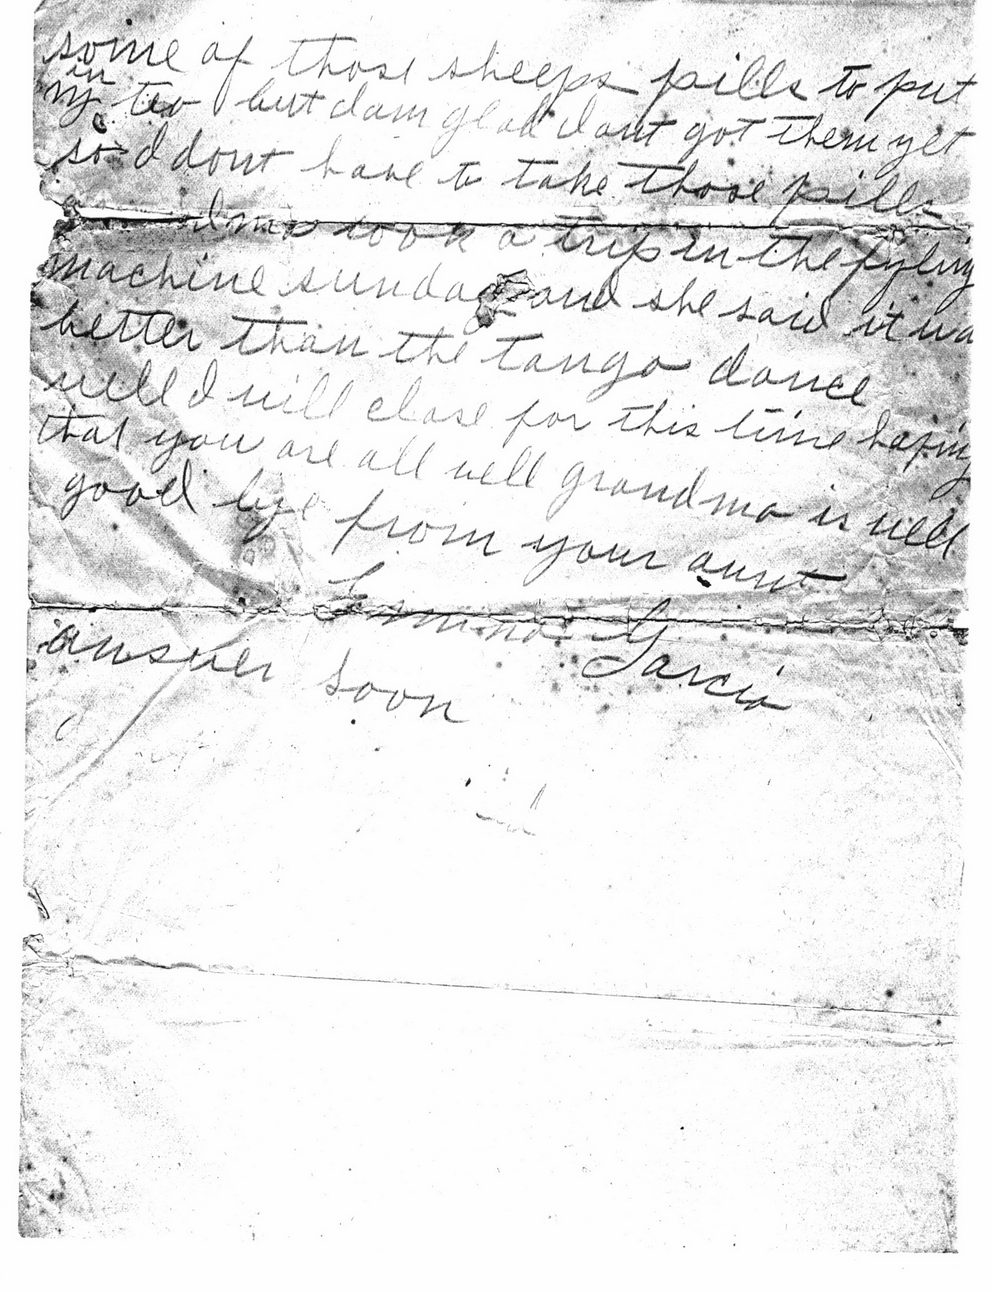 some of those sheeps pills to put
in
my tea but dam glad I ant got them yet
so I dont have to take those pills
took a trip in the fyling
machine sunday and she said it wa
better than the tango dance
well I will close for this time hoping
that you are all well grandma is well
good bye from your aunt
Emma Garcia
answer soon